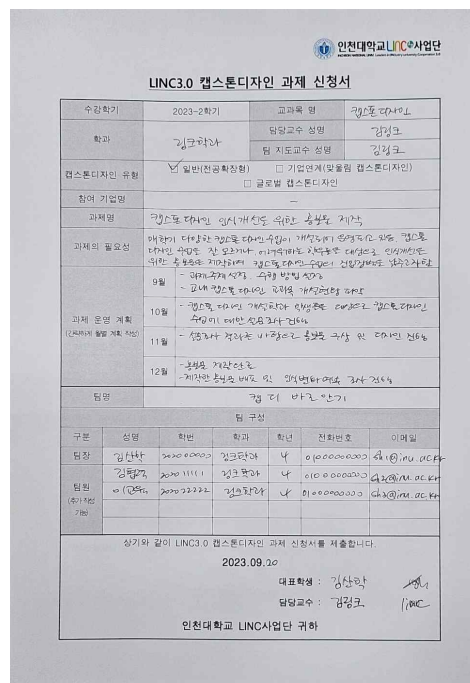 인천대학교LINC사업단
LINC3.0 캡스톤디자인 과제 신청서
수강학기 2023-2학기 교과목 명 캡스톤디자인
학과 링크학과 담당교수 성명 김링크
팀 지도교수 성명 김링크
캡스톤디자인 유형 일반(전공확장형) 기업연계(맞울림 캡스톤디자인)
글로벌 캡스톤디자인
참여 기업명 —
과제명 캡스톤 디자인 인식개선을 위한 홍보물 제작
과제의 필요성 매학기 다양한 캡스톤 디자인수업이 개설되어 운영되고 있음 캡스톤
디자인 수업을 잘 모르거나 어려워하는 학우들을 대상으로 인식개선을
위한 홍보물을 제작하여 캡스톤디자인수업의 진입장벽을 낮추고자함
과제 운영 계획
(간략하게 월별 계획 작성)
9월 - 과제주제 선정, 수행 방법 선정
- 교내 캡스톤 디자인 교과목 개설현황 파악
10월 - 캡스톤 디자인 개설학과 학생들을 대상으로 캡스톤디자인
수업에 대한 설문조사 진행
11월 - 설문조사 결과를 바탕으로 홍보물 구상 및 디자인 진행
12월 - 홍보물 제작완료
- 제작한 홍보물 배포 및 인식변화여부 조사 진행
팀명 캡디 바로 알기
팀 구성
구분 성명 학번 학과 학년 전화번호 이메일
팀장 김산학 202000000 링크학과 4 01000000000 sh1@inu.ac.kr
김협력 202011111 링크학과 4 01000000000 sh2@inu.ac.kr
팀원 이교육 202022222 링크학과 4 01000000000 sh3@inu.ac.kr
(추가 작성
가능)
상기와 같이 LINC3.0 캡스톤디자인 과제 신청서를 제출합니다.
2023.09.20
대표학생 : 김산학
담당교수 : 김링크 linc
인천대학교 LINC사업단 귀하